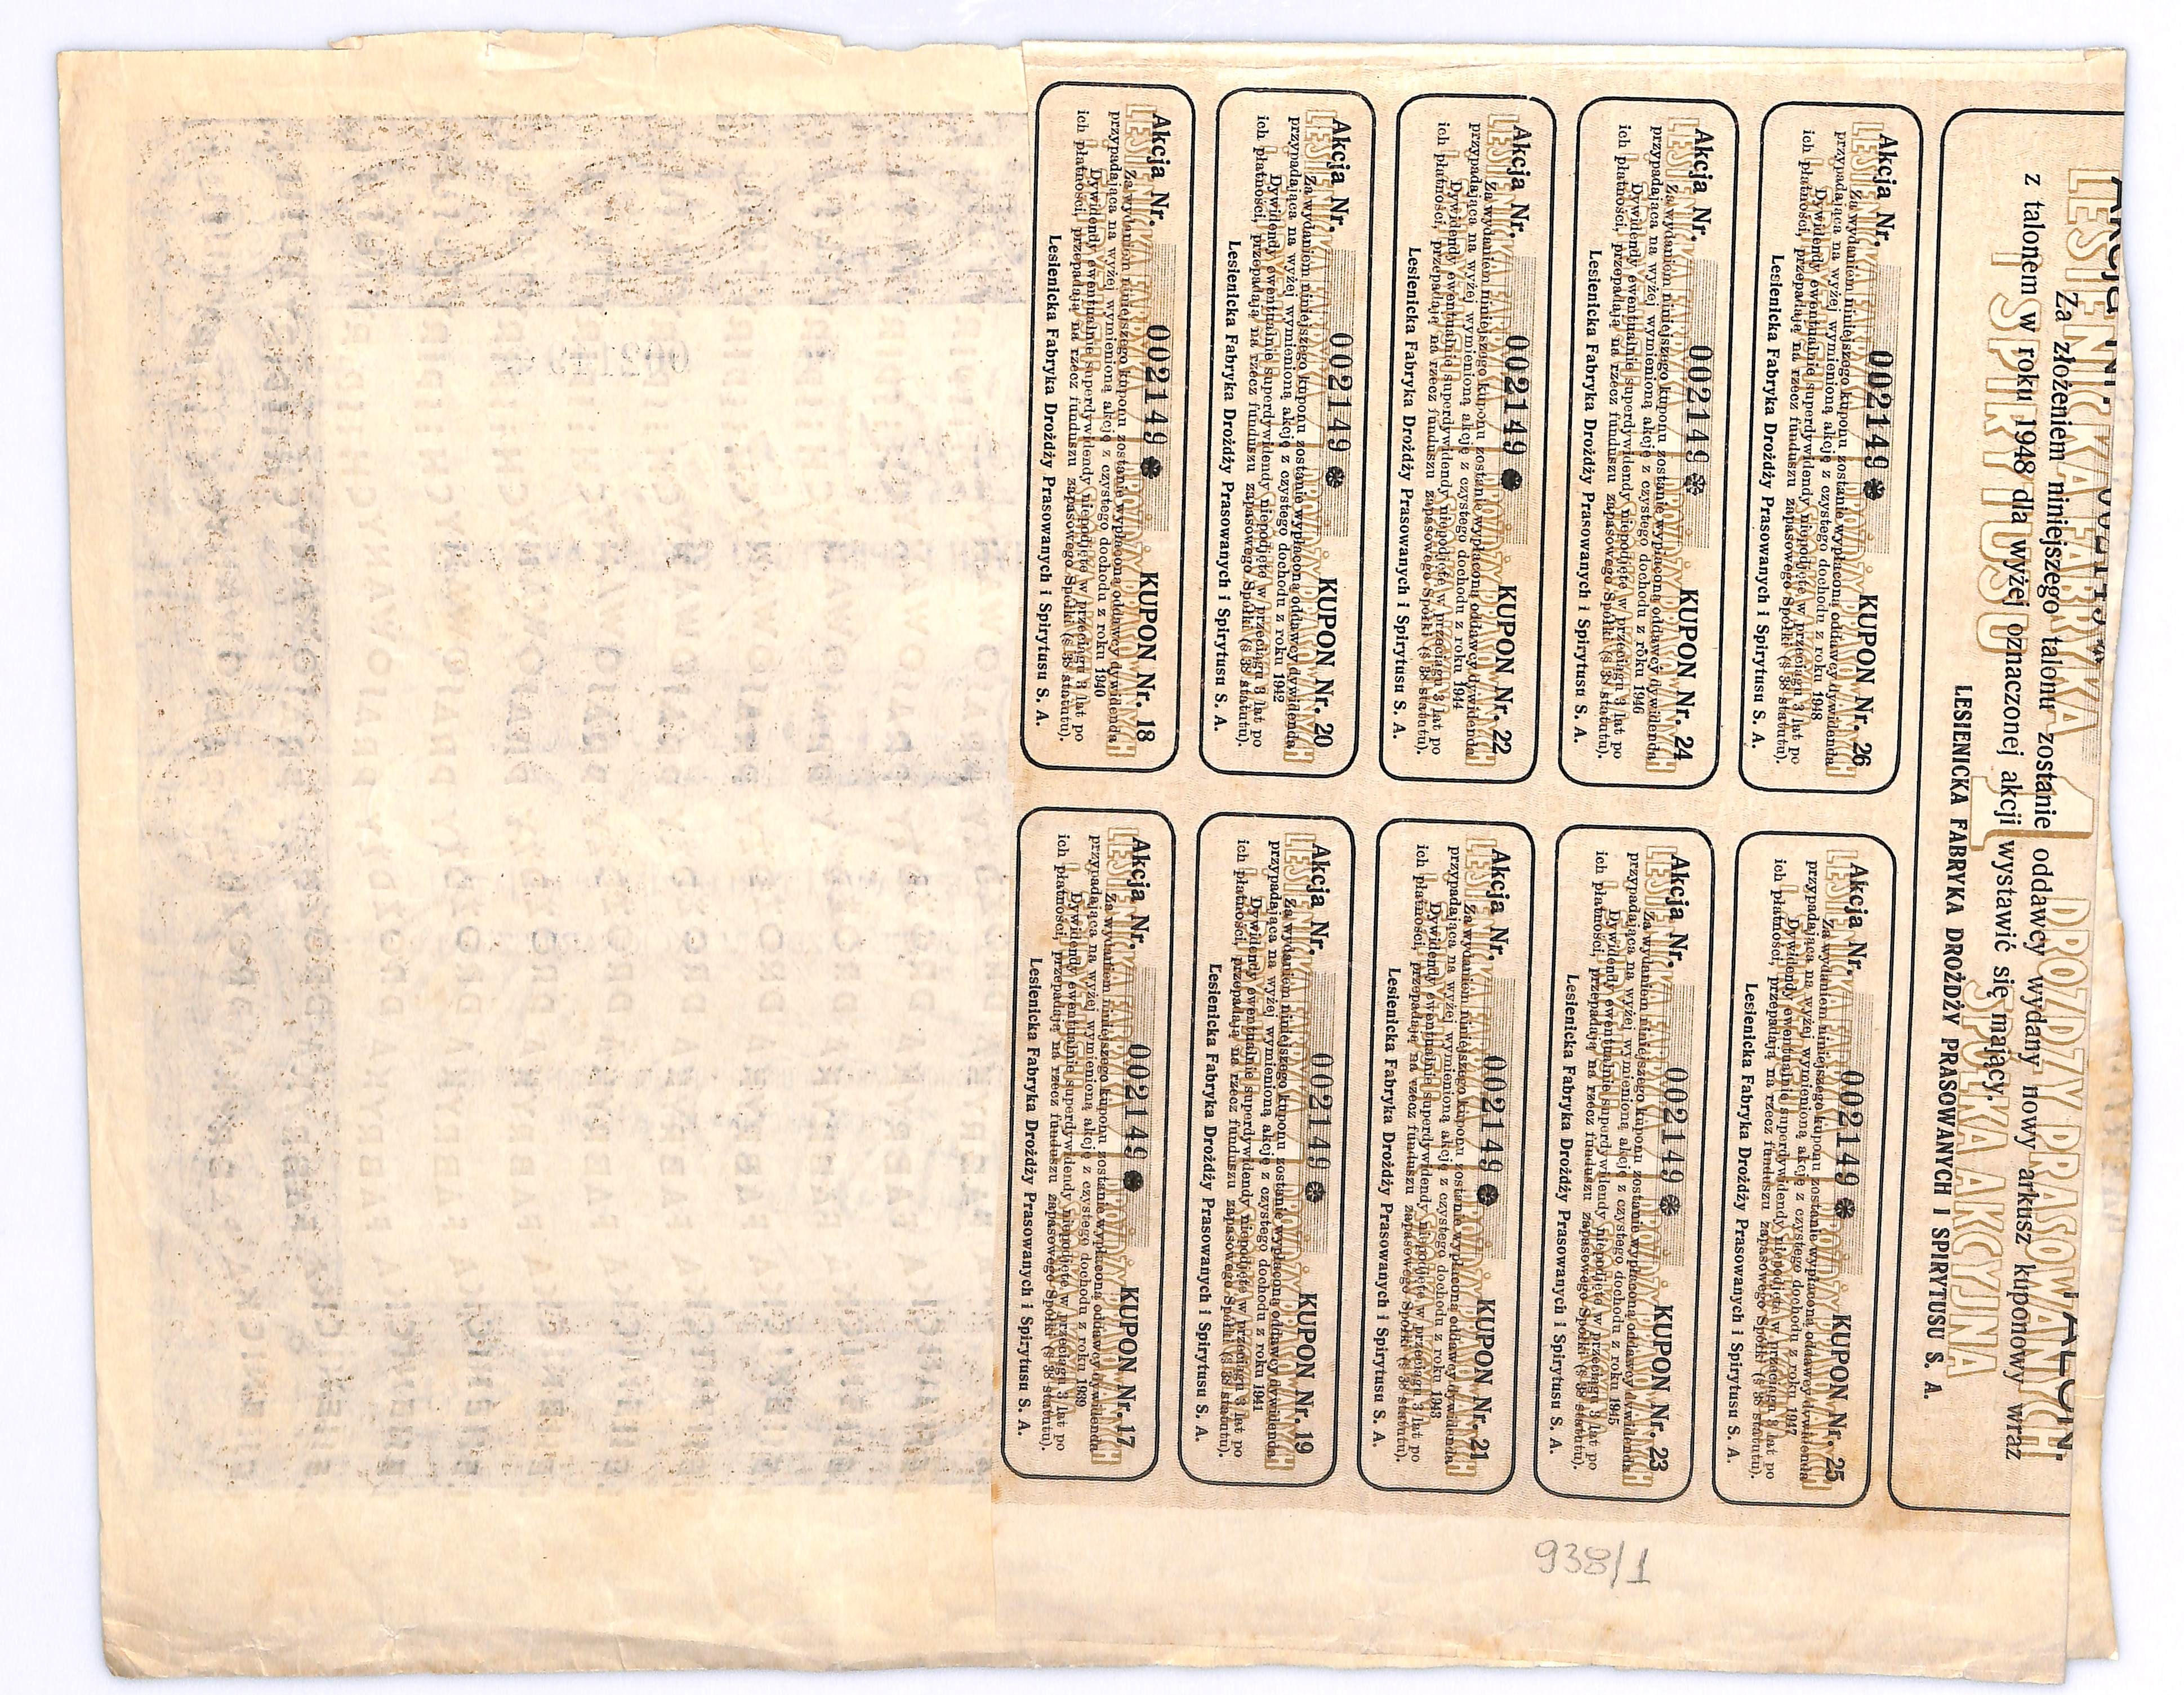 Akcja Nr. 002149 TALON.
LESIENICKA FABRYKA 1 DROŻDŻY PRASOWANYCH
I SPIRYTUSU SPÓŁKA AKCYJNA
Za złożeniem niniejszego talonu zostanie oddawcy wydany nowy arkusz kuponowy wraz
z talonem w roku 1948 dla wyżej oznaczonej akcji wystawić się mający.
LESIENICKA FABRYKA DROŻDŻY PRASOWANYCH I SPIRYTUSU S. A.
Akcja Nr. 002149 KUPON Nr. 26
Za wydaniem niniejszego kuponu zostanie wypłaconą oddawcy dywidenda
przypadająca na wyżej wymienioną akcję z czystego dochodu z roku 1948
Dywidendy ewentualnie superdywidendy niepodjęte w przeciągu 3 lat po
ich płatności, przepadają na rzecz funduszu zapasowego Spółki (§ 38 statutu).
Lesienicka Fabryka Drożdży Prasowanych i Spirytusu S. A.
Akcja Nr. 002149 KUPON Nr. 25
Za wydaniem niniejszego kuponu zostanie wypłaconą oddawcy dywidenda
przypadająca na wyżej wymienioną akcję z czystego dochodu z roku 1947
Dywidendy ewentualnie superdywidendy niepodjęte w przeciągu 3 lat po
ich płatności, przepadają na rzecz funduszu zapasowego Spółki (§ 38 statutu).
Lesienicka Fabryka Drożdży Prasowanych i Spirytusu S. A.
Akcja Nr. 002149 KUPON Nr. 24
Za wydaniem niniejszego kuponu zostanie wypłaconą oddawcy dywidenda
przypadająca na wyżej wymienioną akcję z czystego dochodu z roku 1946
Dywidendy ewentualnie superdywidendy niepodjęte w przeciągu 3 lat po
ich płatności, przepadają na rzecz funduszu zapasowego Spółki (§ 38 statutu).
Lesienicka Fabryka Drożdży Prasowanych i Spirytusu S. A.
Akcja Nr. 002149 KUPON Nr. 23
Za wydaniem niniejszego kuponu zostanie wypłaconą oddawcy dywidenda
przypadająca na wyżej wymienioną akcję z czystego dochodu z roku 1945
Dywidendy ewentualnie superdywidendy niepodjęte w przeciągu 3 lat po
ich płatności, przepadają na rzecz funduszu zapasowego Spółki (§ 38 statutu).
Lesienicka Fabryka Drożdży Prasowanych i Spirytusu S. A.
Akcja Nr. 002149 KUPON Nr. 22
Za wydaniem niniejszego kuponu zostanie wypłaconą oddawcy dywidenda
przypadająca na wyżej wymienioną akcję z czystego dochodu z roku 1944
Dywidendy ewentualnie superdywidendy niepodjęte w przeciągu 3 lat po
ich płatności, przepadają na rzecz funduszu zapasowego Spółki (§ 38 statutu).
Lesienicka Fabryka Drożdży Prasowanych i Spirytusu S. A.
Akcja Nr. 002149 KUPON Nr. 21
Za wydaniem niniejszego kuponu zostanie wypłaconą oddawcy dywidenda
przypadająca na wyżej wymienioną akcję z czystego dochodu z roku 1943
Dywidendy ewentualnie superdywidendy niepodjęte w przeciągu 3 lat po
ich płatności, przepadają na rzecz funduszu zapasowego Spółki (§ 38 statutu).
Lesienicka Fabryka Drożdży Prasowanych i Spirytusu S. A.
Akcja Nr. 002149 KUPON Nr. 20
Za wydaniem niniejszego kuponu zostanie wypłaconą oddawcy dywidenda
przypadająca na wyżej wymienioną akcję z czystego dochodu z roku 1942
Dywidendy ewentualnie superdywidendy niepodjęte w przeciągu 3 lat po
ich płatności, przepadają na rzecz funduszu zapasowego Spółki (§ 38 statutu).
Lesienicka Fabryka Drożdży Prasowanych i Spirytusu S. A.
Akcja Nr. 002149 KUPON Nr. 19
Za wydaniem niniejszego kuponu zostanie wypłaconą oddawcy dywidenda
przypadająca na wyżej wymienioną akcję z czystego dochodu z roku 1941
Dywidendy ewentualnie superdywidendy niepodjęte w przeciągu 3 lat po
ich płatności, przepadają na rzecz funduszu zapasowego Spółki (§ 38 statutu).
Lesienicka Fabryka Drożdży Prasowanych i Spirytusu S. A.
Akcja Nr. 002149 KUPON Nr. 18
Za wydaniem niniejszego kuponu zostanie wypłaconą oddawcy dywidenda
przypadająca na wyżej wymienioną akcję z czystego dochodu z roku 1940
Dywidendy ewentualnie superdywidendy niepodjęte w przeciągu 3 lat po
ich płatności, przepadają na rzecz funduszu zapasowego Spółki (§ 38 statutu).
Lesienicka Fabryka Drożdży Prasowanych i Spirytusu S. A.
Akcja Nr. 002149 KUPON Nr. 17
Za wydaniem niniejszego kuponu zostanie wypłaconą oddawcy dywidenda
przypadająca na wyżej wymienioną akcję z czystego dochodu z roku 1939
Dywidendy ewentualnie superdywidendy niepodjęte w przeciągu 3 lat po
ich płatności, przepadają na rzecz funduszu zapasowego Spółki (§ 38 statutu).
Lesienicka Fabryka Drożdży Prasowanych i Spirytusu S. A.
938/1